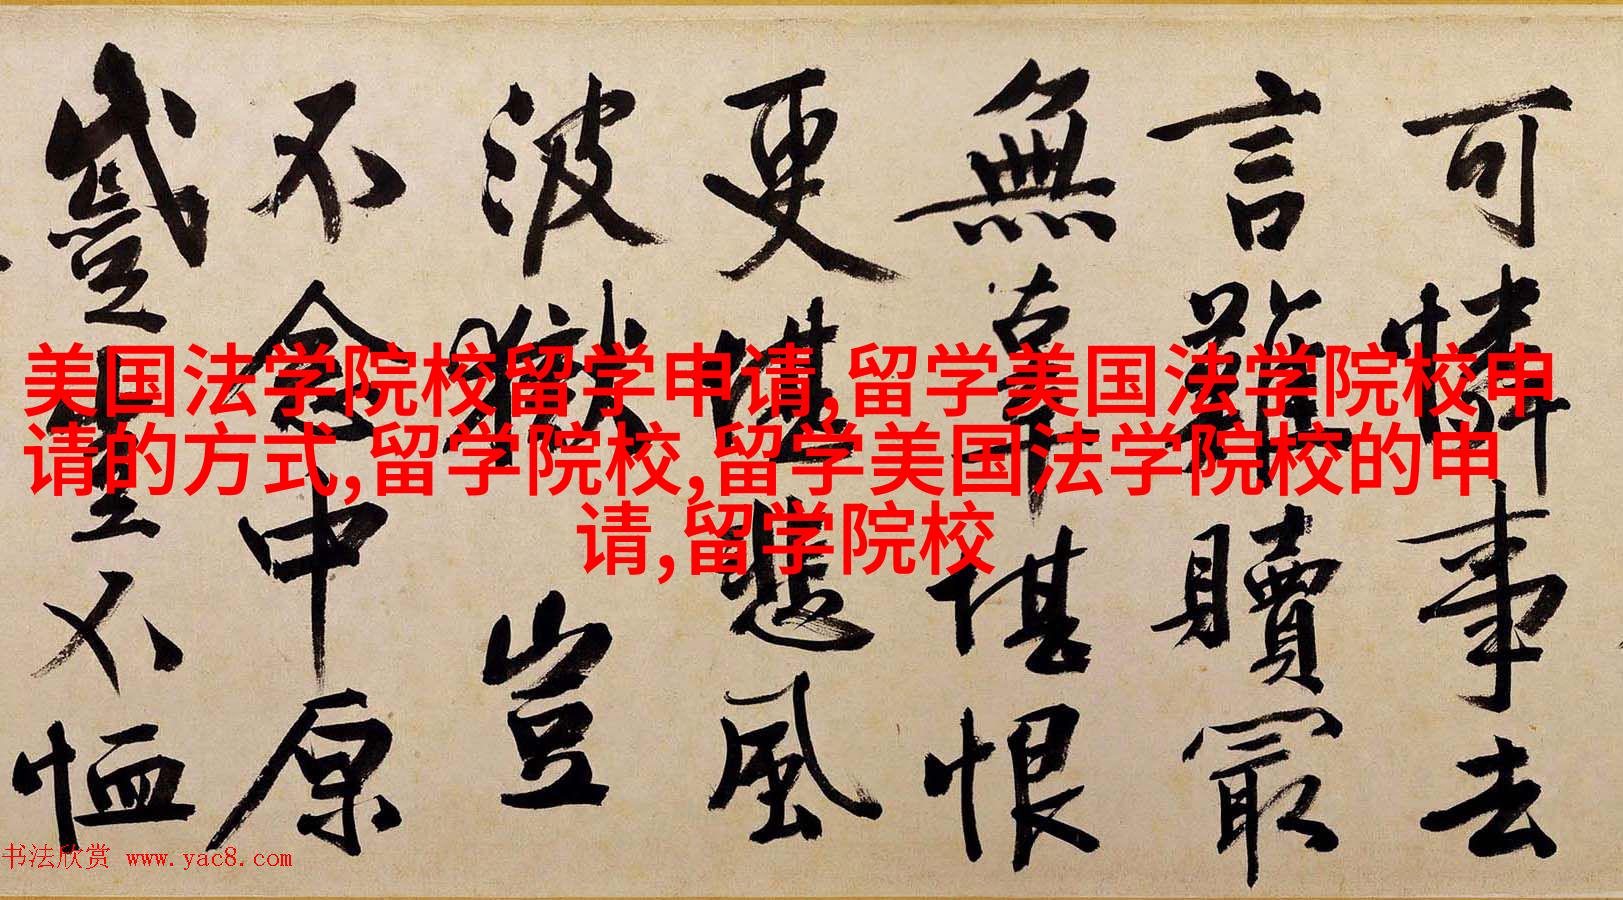 可憐事去
言難贖最
無辜堪恨
更堪悲風
波獄豈
不念中原
蹙豈不恤
美国法学院校留学申请,留学美国法学院校申
请的方式,留学院校,留学美国法学院校的申
请,留学院校
书法欣赏 www.yac8.com